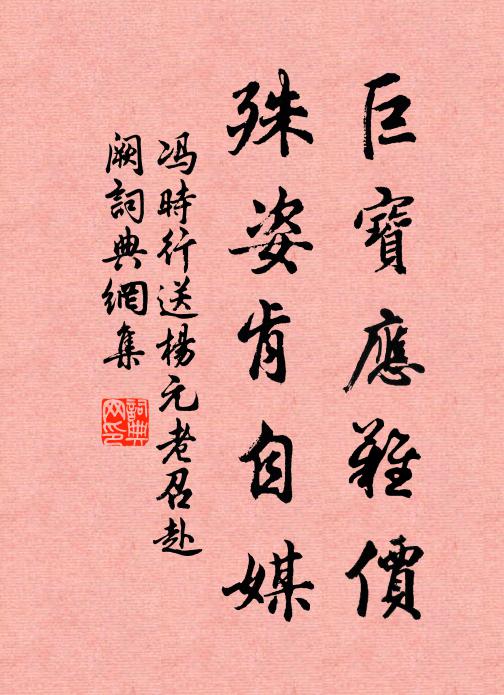 巨寶應難價
殊姿肯自媒
馮時行送楊元老召赴
闕詞典網集
詞典
网印